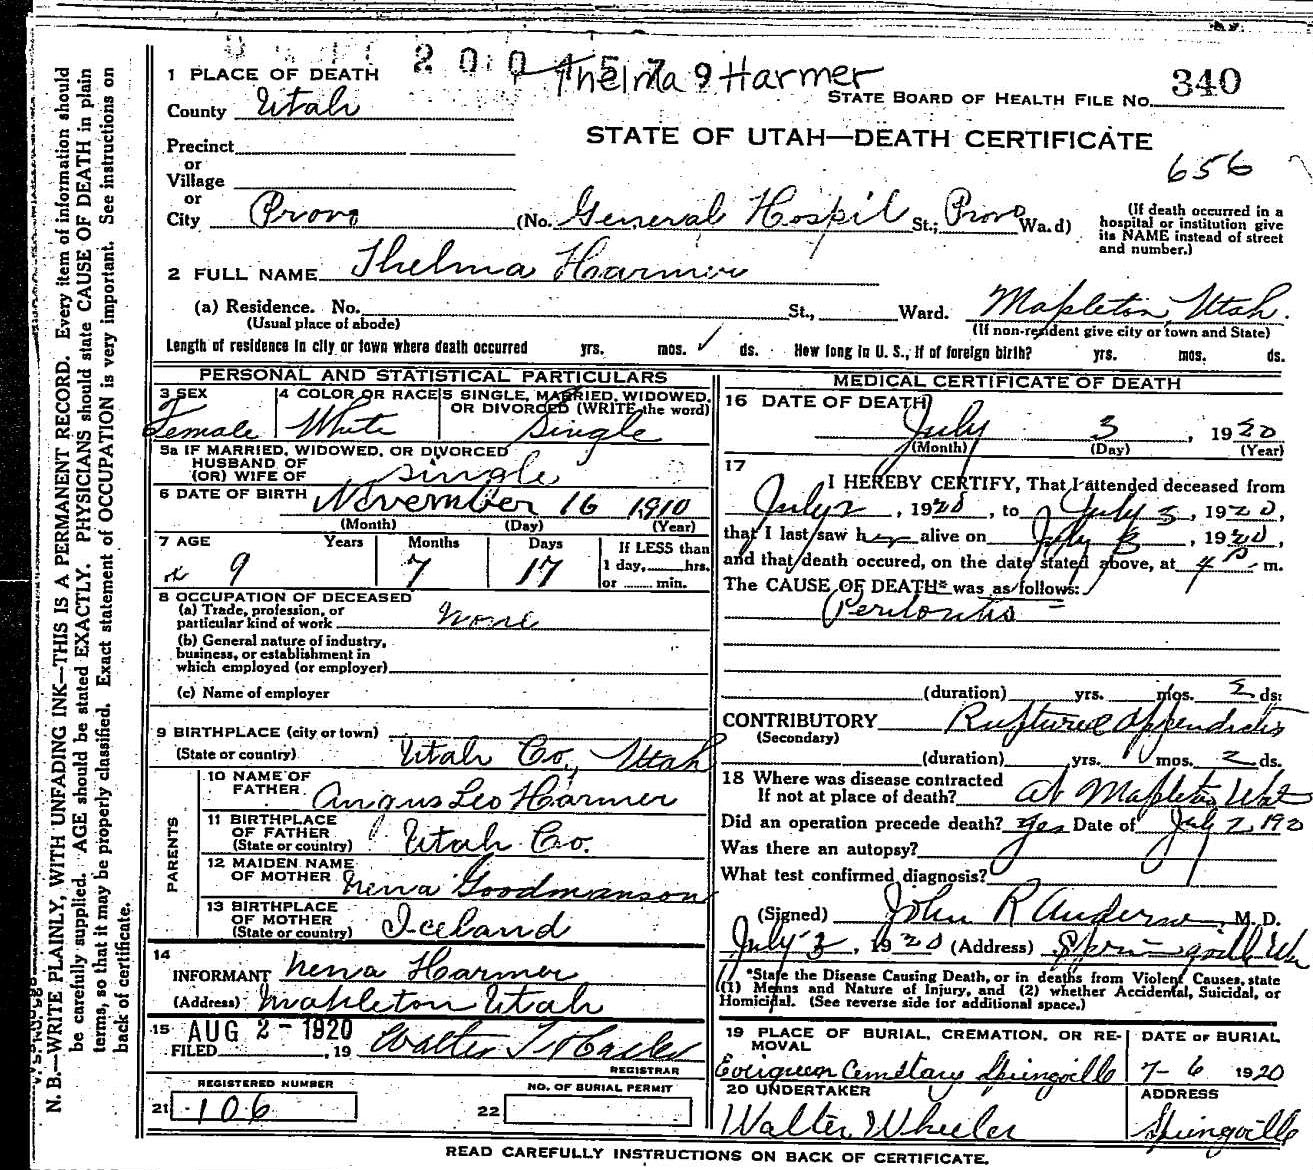 2001579 Thelma Harmer
1 PLACE OF DEATH
STATE BOARD OF HEALTH FILE NO. 340
County Utah
STATE OF UTAH—DEATH CERTIFICATE
656
Precinct
or
Village
or
City Provo (No. General Hospil St.; Provo Wa.d)
(If death occurred in a
hospital or institution give
its NAME instead of street
and number.)
2 FULL NAME Thelma Harmer
(a) Residence. No. St., Ward. Mapleton, Utah.
(Usual place of abode) (If non-resident give city or town and State)
Length of residence in city or town where death occurred yrs. mos. ds. How long in U. S., if of foreign birth? yrs. mos. ds.
PERSONAL AND STATISTICAL PARTICULARS
3 SEX 4 COLOR OR RACE 5 SINGLE, MARRIED, WIDOWED,
OR DIVORCED (WRITE the word)
Female White Single
5a IF MARRIED, WIDOWED, OR DIVORCED
HUSBAND OF
(OR) WIFE OF single
6 DATE OF BIRTH November 16 1910
(Month) (Day) (Year)
7 AGE Years Months Days If LESS than
1 day, hrs.
or min.
9 7 17
8 OCCUPATION OF DECEASED
(a) Trade, profession, or
particular kind of work none
(b) General nature of industry,
business, or establishment in
which employed (or employer)
(c) Name of employer
9 BIRTHPLACE (city or town)
(State or country) Utah Co., Utah
PARENTS
10 NAME OF
FATHER Angus Leo Harmer
11 BIRTHPLACE
OF FATHER
(State or country) Utah Co.
12 MAIDEN NAME
OF MOTHER Nena Goodmanson
13 BIRTHPLACE
OF MOTHER
(State or country) Iceland
14
INFORMANT Nena Harmer
(Address) Mapleton Utah
15 AUG 2 - 1920
FILED , 19 Walter T
REGISTRAR
REGISTERED NUMBER NO. OF BURIAL PERMIT
21 106 22
MEDICAL CERTIFICATE OF DEATH
16 DATE OF DEATH
July 3, 1920
(Month) (Day) (Year)
17
I HEREBY CERTIFY, That I attended deceased from
July 2, 1920, to July 3, 1920,
that I last saw her alive on July 3, 1920,
and that death occured, on the date stated above, at 4 P m.
The CAUSE OF DEATH* was as follows:
Peritonitis
(duration) yrs. mos. 2 ds.
CONTRIBUTORY Ruptured appendicitis
(Secondary)
(duration) yrs. mos. 2 ds.
18 Where was disease contracted
If not at place of death? at Mapleton Utah
Did an operation precede death? yes Date of July 2, 1920
Was there an autopsy?
What test confirmed diagnosis?
(Signed) John R Anderson, M. D.
July 3, 1920 (Address) Springville Utah
*State the Disease Causing Death, or in deaths from Violent Causes, state
(1) Means and Nature of Injury, and (2) whether Accidental, Suicidal, or
Homicidal. (See reverse side for additional space.)
19 PLACE OF BURIAL, CREMATION, OR RE-
MOVAL DATE OF BURIAL
Evergreen Cemetary Springville 7-6 1920
20 UNDERTAKER ADDRESS
Walter Wheeler Springville
READ CAREFULLY INSTRUCTIONS ON BACK OF CERTIFICATE.
N. B.—WRITE PLAINLY, WITH UNFADING INK—THIS IS A PERMANENT RECORD. Every item of information should
be carefully supplied. AGE should be stated EXACTLY. PHYSICIANS should state CAUSE OF DEATH in plain
terms, so that it may be properly classified. Exact statement of OCCUPATION is very important. See instructions on
back of certificate.